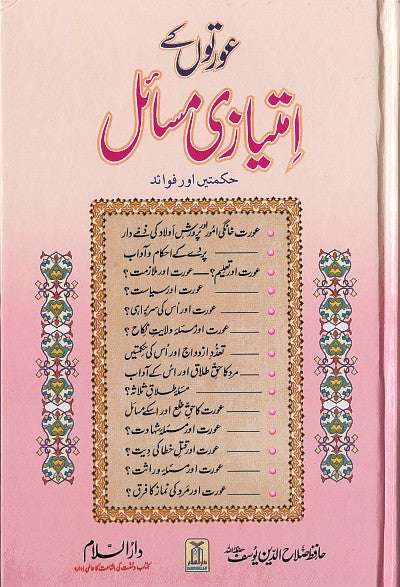 عورتوں کے
امتیازی مسائل
حکمتیں اور فوائد
عورت خانگی امور اور پرورش اولاد کی ذمے دار
پردے کے احکام و آداب
عورت اور تعلیم؟ — عورت اور ملازمت؟
عورت اور سیاست؟
عورت اور اُس کی سربراہی؟
عورت اور مسئلۂ ولایتِ نکاح؟
تعدّدِ ازدواج اور اُس کی حکمتیں
مرد کا حقِ طلاق اور اُس کے آداب
مسئلۂ طلاقِ ثلاثہ؟
عورت کا حقِ خلع اور اسکے مسائل
عورت اور مسئلۂ شہادت؟
عورت اور قتلِ خطا کی دیت؟
عورت اور مسئلۂ وراثت؟
عورت اور مرد کی نماز کا فرق؟
حافظ صلاح الدین یوسف حفظہ اللہ
دارالسلام
DARUSSALAM
دارالسلام
کتاب و سنت کی اشاعت کا عالمی ادارہ